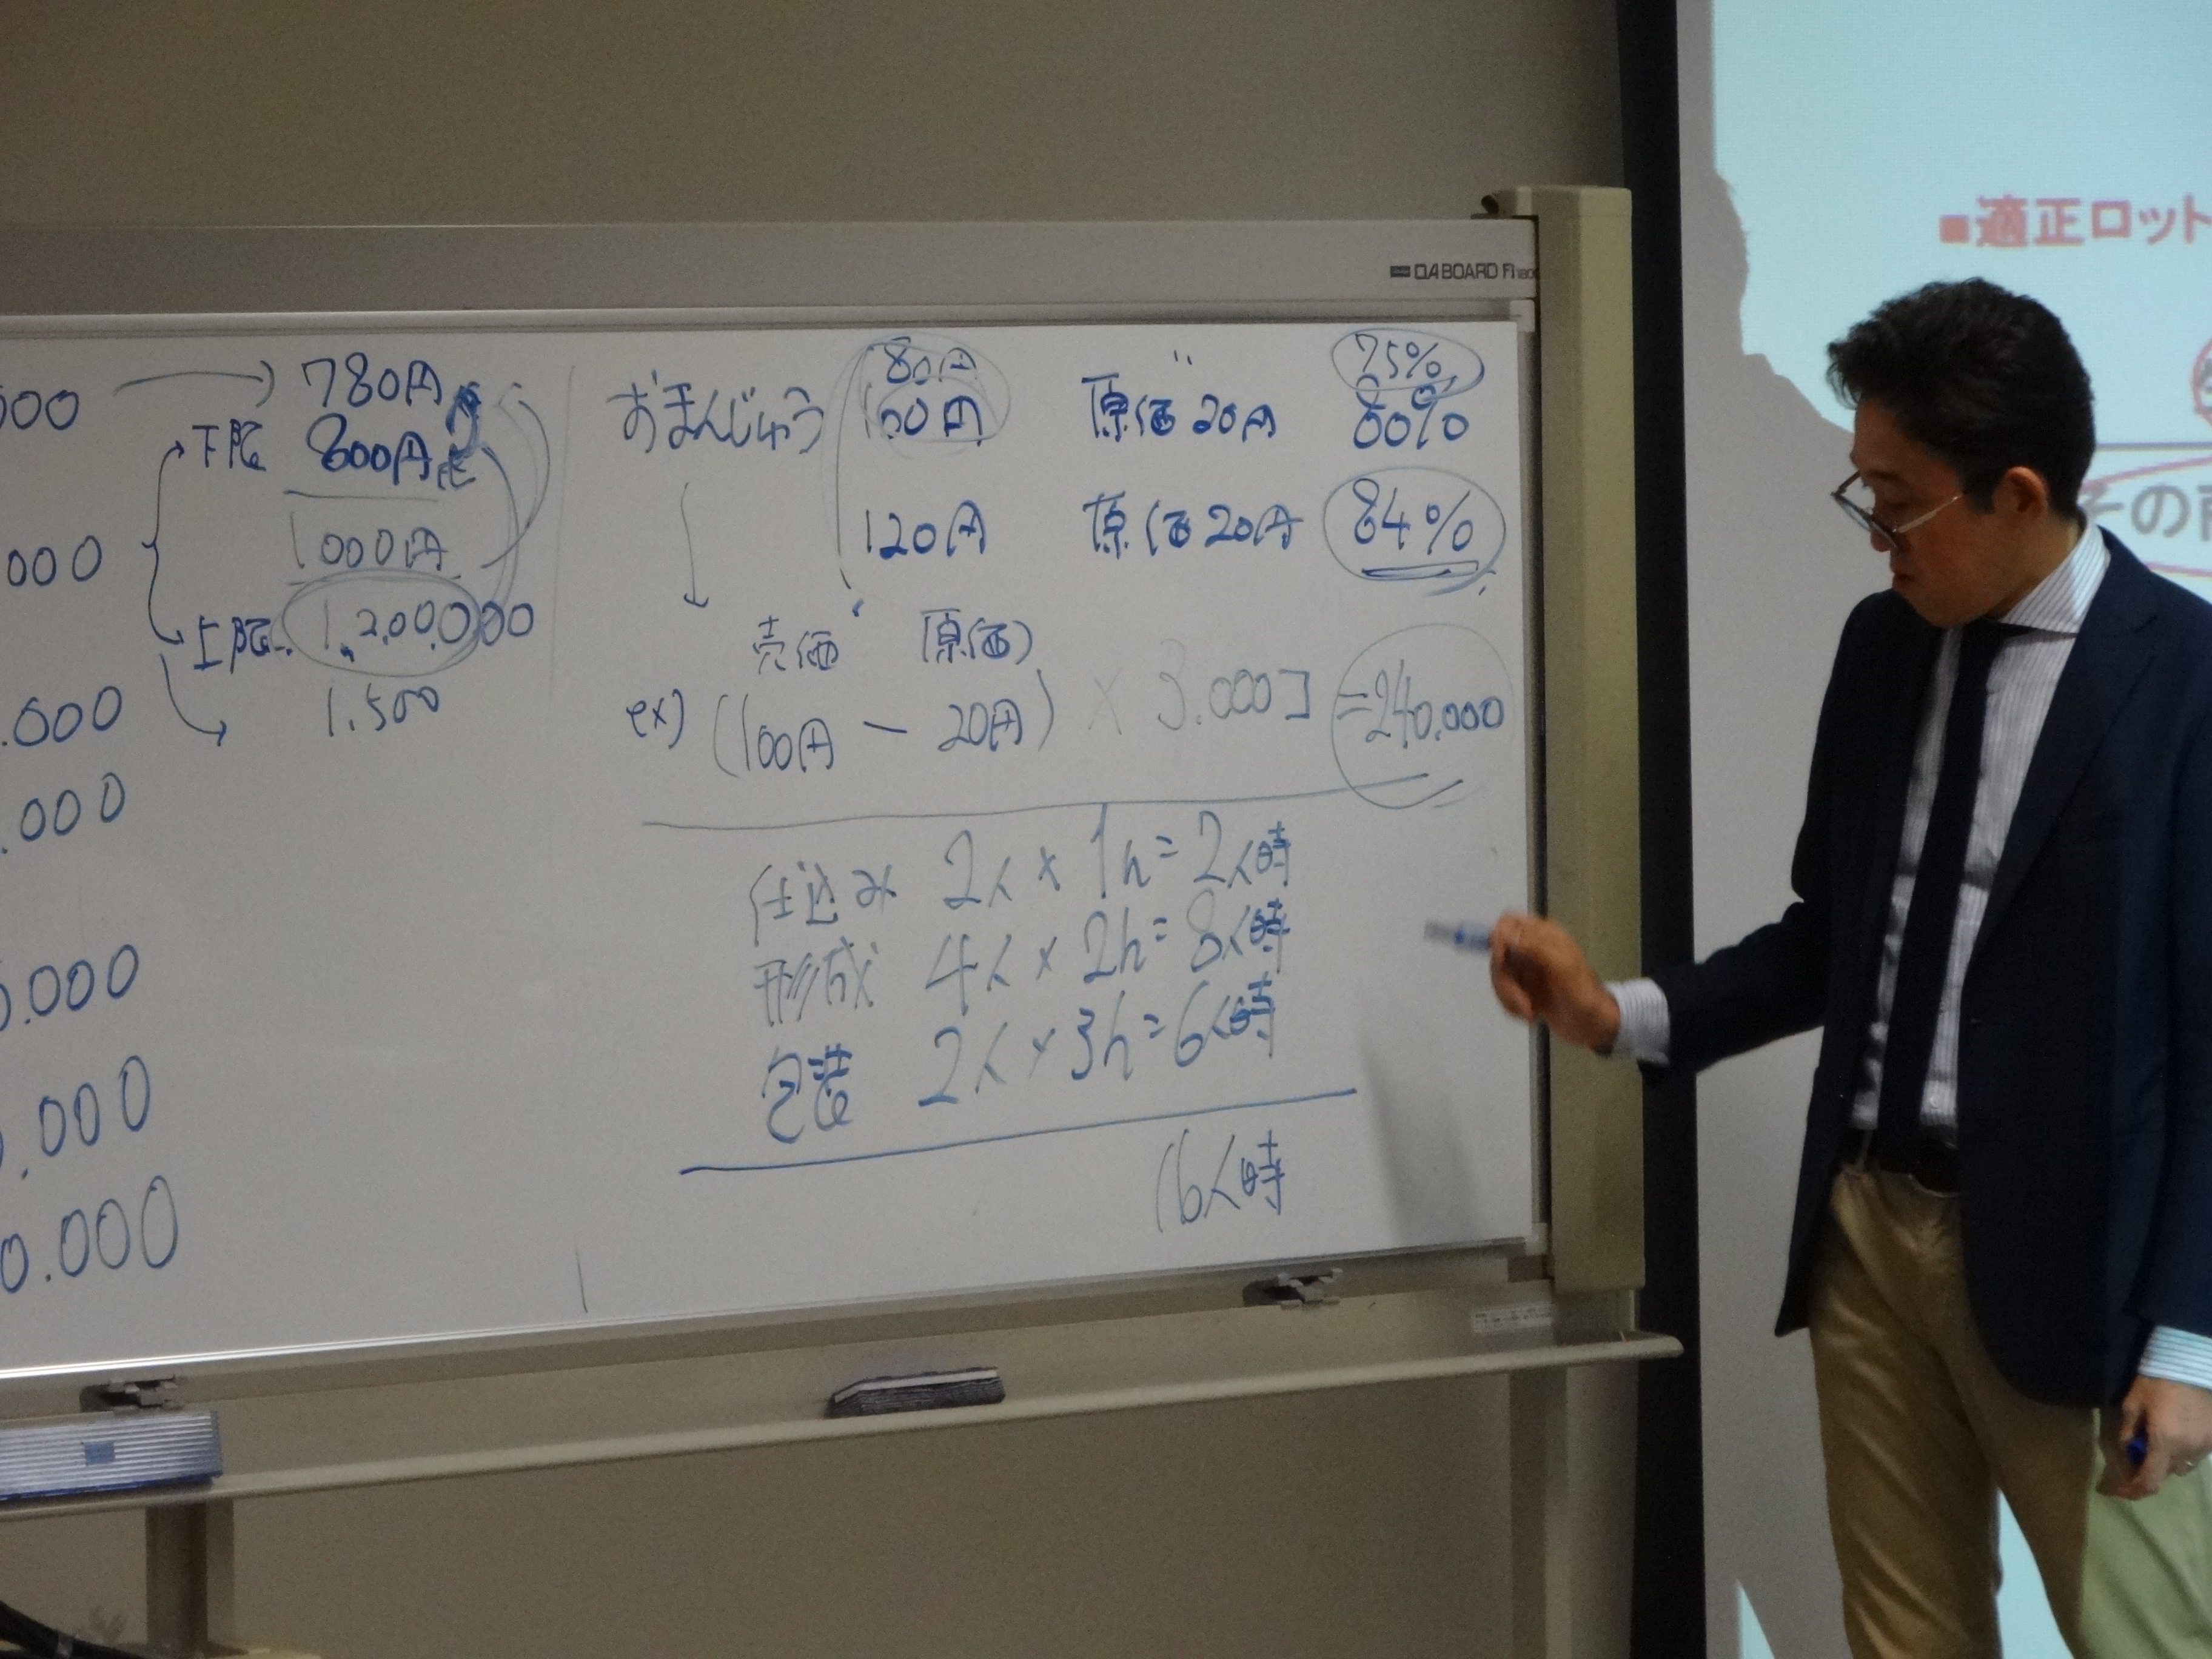 DA BOARD
■適正ロット
その
000
780円
下限 800円
1000円
000
上限 1,200,000
1.500
.000
.000
.000
.000
0.000
80円 〃 75%
おまんじゅう 100円 原価20円 80%
120円 原価20円 84%
売価 原価
ex) (100円 － 20円) × 3.000コ =240,000
仕込み 2人 × 1h = 2人時
形成 4人 × 2h = 8人時
包装 2人 × 3h = 6人時
16人時